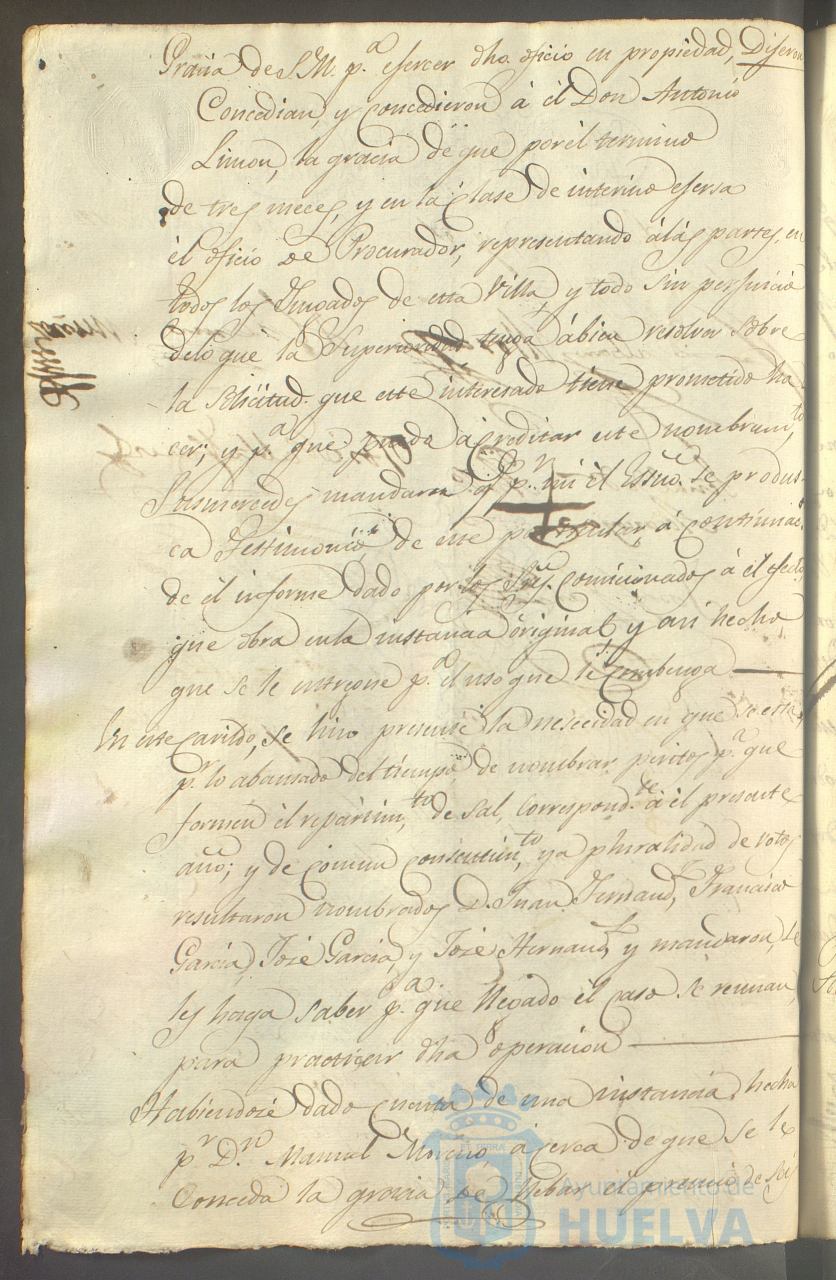 Gracia de S.M. p.ª eserser dho. oficio en propiedad, Diseron
Concedian, y concedieron á él Don Antonio
Limon, la gracia de que por él termino
de tres meces, y en la clase de interino esersa
él oficio de Procurador, representando álas partes, en
todos los Jusgados de esta Villa, y todo sin persuicio
delo que la Superioridad tenga ábien resolver sobre
la solicitud que este interesado tiene prometido ha-
cer; y p.ª que pueda ácreditar este nombram.to
Susmercedes mandaron q.e p.r mi él Essno. se produs-
ca Testimonio de este particular, á continuac.n
de él informe dado por los Sres. comicionados á él efecto,
que obra enla instancia original, y asi hecho
que se le entregue p.ª el uso que le combenga
En este Cavildo, se hiso presente la nesecidad en que se está,
p.r lo abansado del tiempo de nombrar peritos p.ª que
formen él repartim.to de Sal, correspond.te á él presente
año; y de comun consentim.to, y a pluralidad de votos
resultaron nombrados D. Juan Fernand.z, Francisco
Garcia, José Garcia, y José Hernand.z, y mandaron, se
les haga saber p.ª que llegado él caso se reunan,
para practicar dha operacion
Habiendose dado cuenta de una instancia hecha
p.r D.n Manuel Moreno á cerca de que se le
Conceda la gracia de llebar el precio de seis
Ayuntamiento de
HUELVA